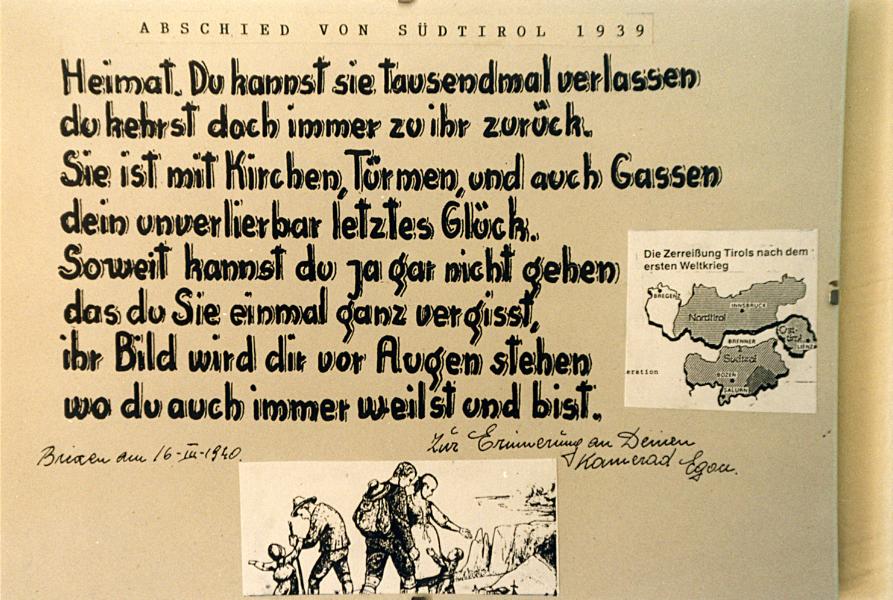 ABSCHIED VON SÜDTIROL 1939
Heimat. Du kannst sie tausendmal verlassen
du kehrst doch immer zu ihr zurück.
Sie ist mit Kirchen, Türmen, und auch Gassen
dein unverlierbar letztes Glück.
Soweit kannst du ja gar nicht gehen
das du Sie einmal ganz vergisst,
ihr Bild wird dir vor Augen stehen
wo du auch immer weilst und bist.
Die Zerreißung Tirols nach dem
ersten Weltkrieg
BREGENZ
INNSBRUCK
Nordtirol
Ost-
tirol
LIENZ
BRENNER
Südtirol
BOZEN
SALURN
eration
Brixen am 16-III-1940.
Zur Erinnerung an Deinen
Kamerad Egon.